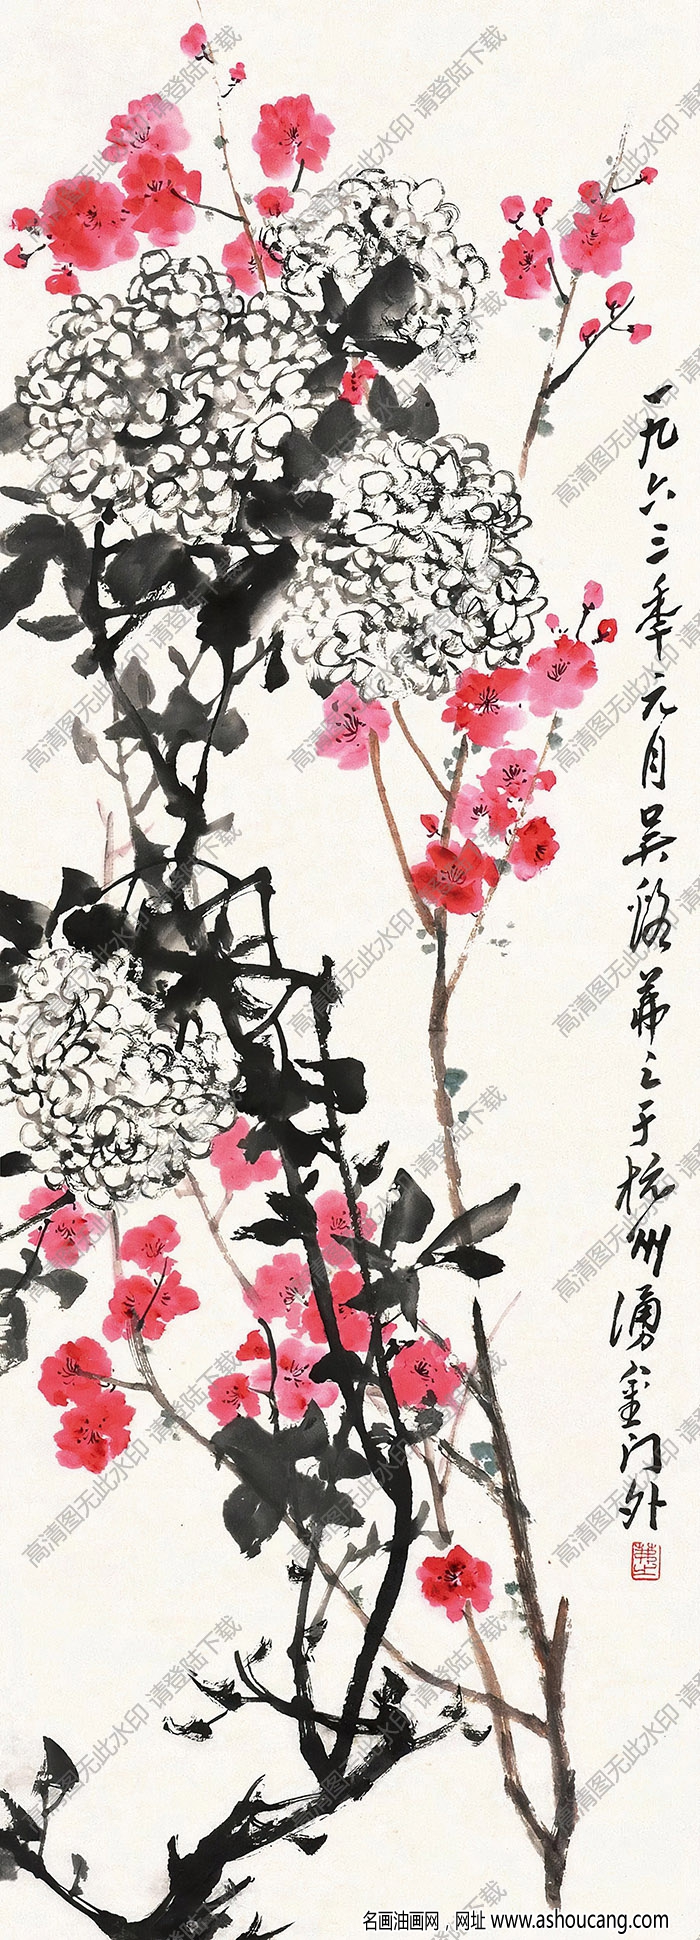 一九六三年元月吴茀之于杭州湧金门外
茀之
高清图无此水印 请登陆下载
名画油画网，网址 www.ashoucang.com